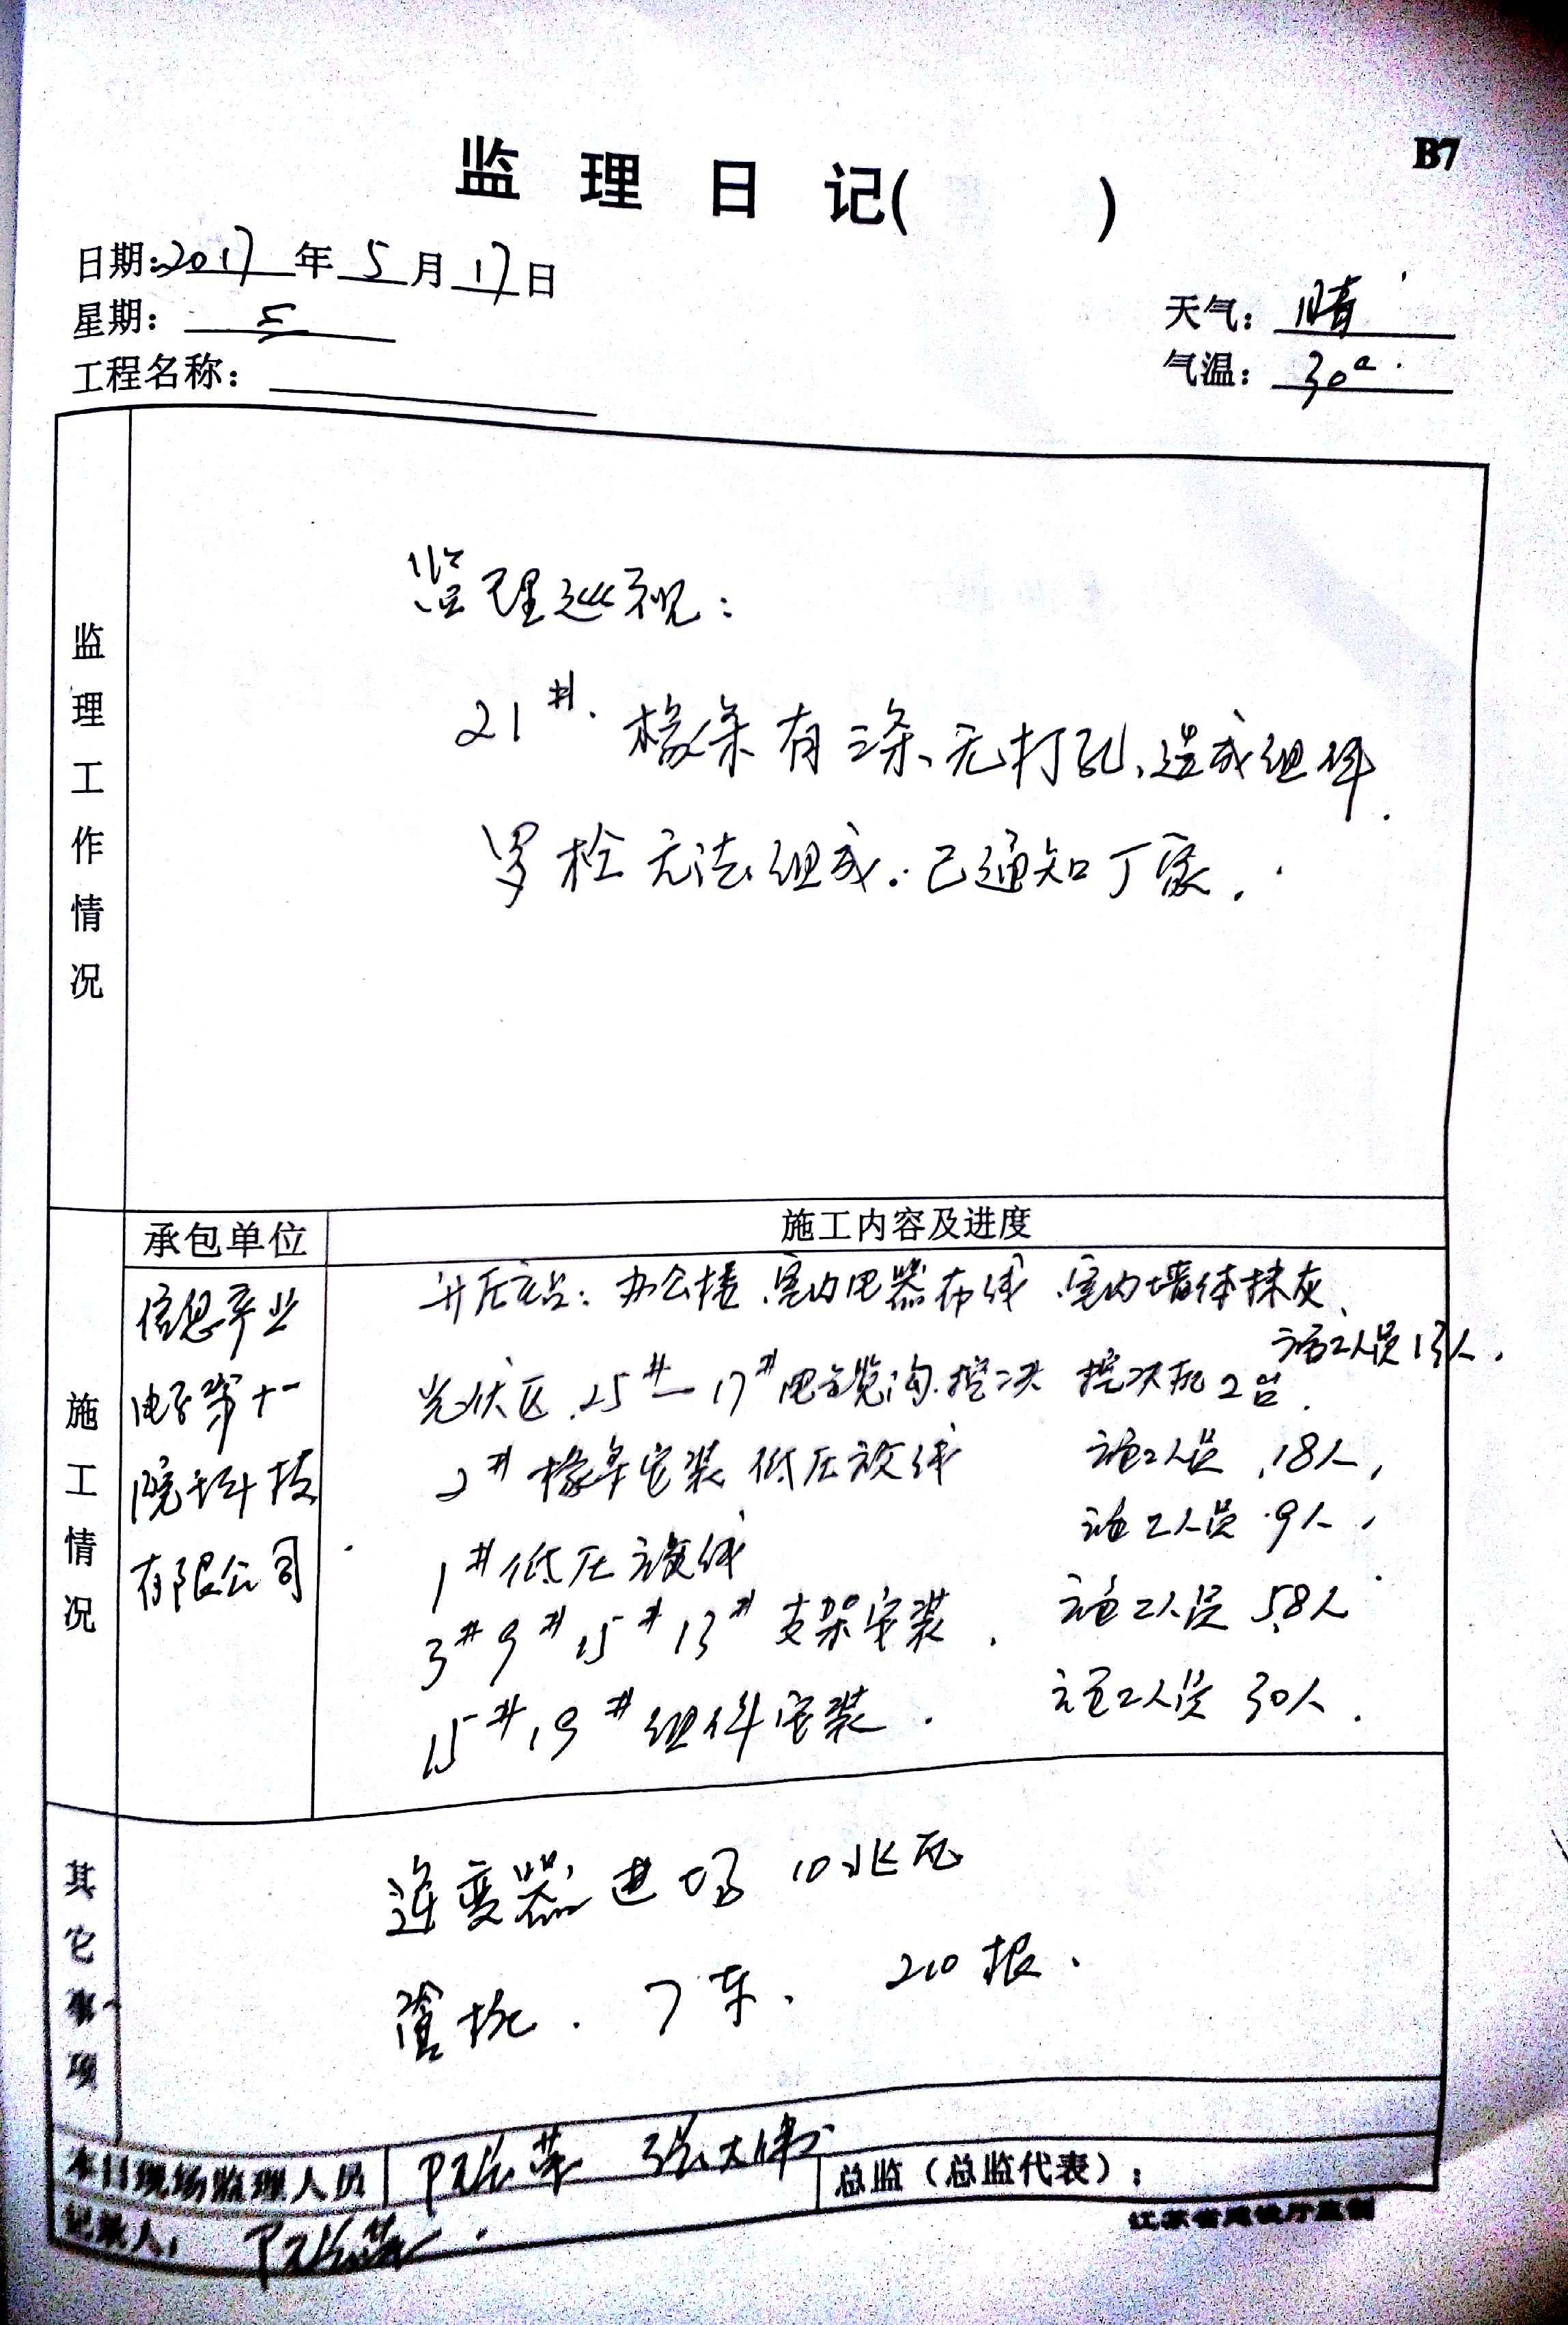 B7
监理日记( )
日期:2017年5月17日
星期: 三
天气: 晴
工程名称:
气温: 30°
监理工作情况
监理巡视:
21#.檩条有三条、无打孔、造成组件
罗栓无法组成.已通知厂家.
施工情况
承包单位
施工内容及进度
信息产业
电子第十一
院科技
有限公司
升压站: 办公楼、室内电器布线、室内墙体抹灰、
施工人员13人.
光伏区.25#—17#电缆沟.挖 挖 机2台.
2#檩条安装 低压放线 施工人员 18人,
1#低压放线 施工人员 9人,
3# 9# 15# 13# 支架安装. 施工人员 58人
15# 19# 组件安装. 施工人员 30人.
其它事项
逆变器进场 10兆瓦
管桩. 7车. 210根.
本日现场监理人员
张大伟
总监(总监代表):
记录人:
江苏省建设厅监制